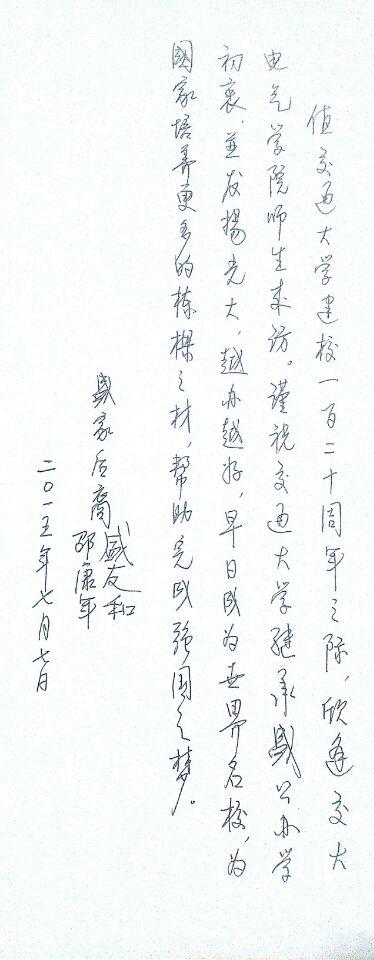 值交通大学建校一百二十周年之际，欣逢交大
电气学院师生来访。谨祝交通大学继承盛公办学
初衷，並发揚光大，越办越好，早日成为世界名校，为
國家培养更多的栋樑之材，帮助完成强国之梦。
盛家后裔 盛友和
邵康年
二〇一五年七月七日